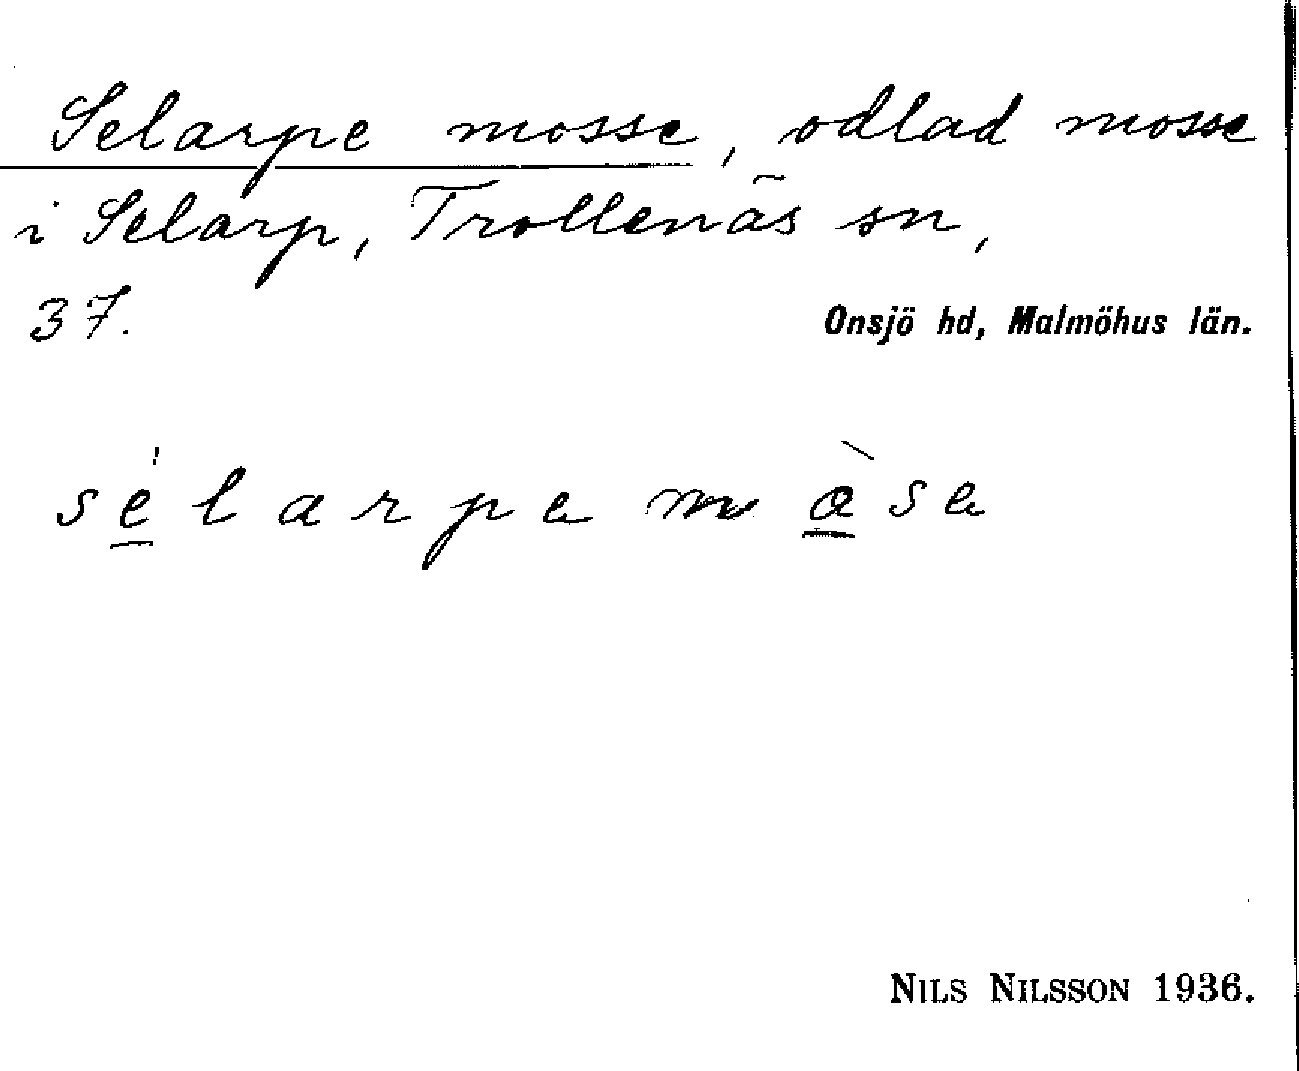 Selarpe mosse, odlad mosse
i Selarp, Trollenäs sn,
37.
Onsjö hd, Malmöhus län.
sélarpe màse
NILS NILSSON 1936.